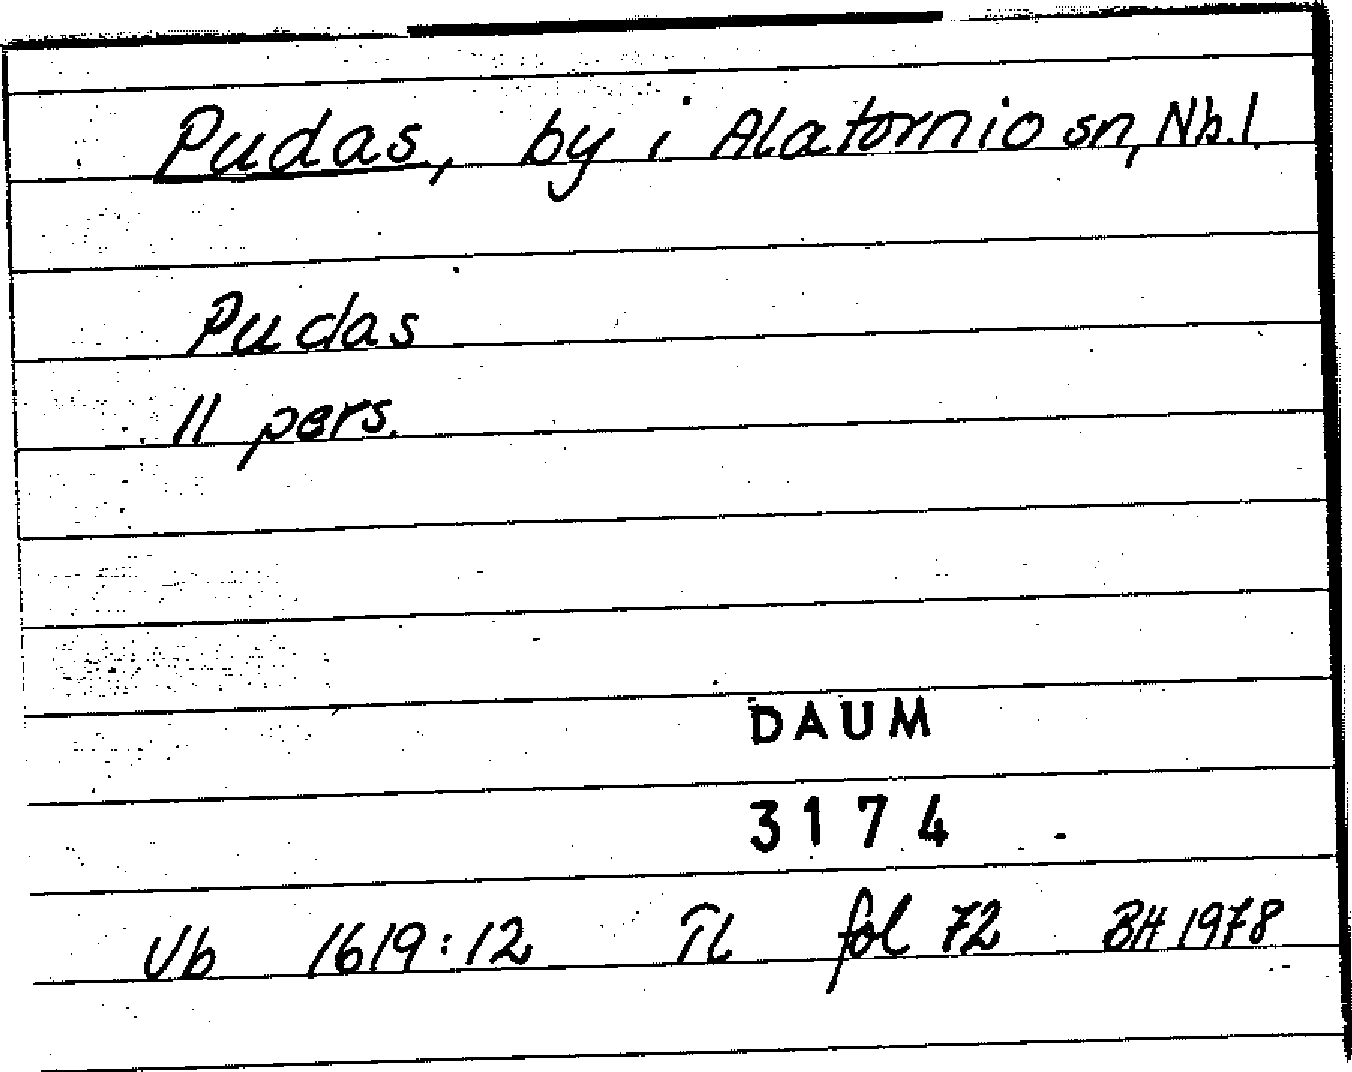 Pudas, by i Alatornio sn, Nb.l.
Pudas
11 pers.
DAUM
3174
Vb 1619:12 TL fol 72 BH 1978